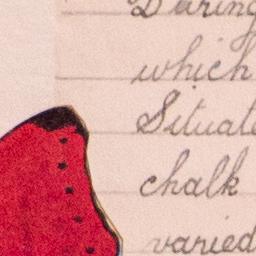 During
which
Situate
chalk
varied